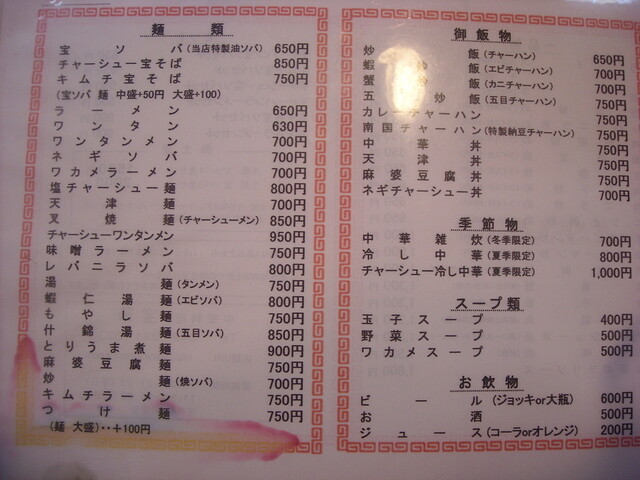 麺類
宝ソバ(当店特製油ソバ) 650円
チャーシュー宝そば 850円
キムチ宝そば 750円
(宝ソバ 麺 中盛+50円 大盛+100)
ラーメン 650円
ワンタン 630円
ワンタンメン 700円
ネギソバ 700円
ワカメラーメン 700円
塩チャーシュー麺 800円
天津麺 700円
叉焼麺(チャーシューメン) 850円
チャーシューワンタンメン 950円
味噌ラーメン 750円
レバニラソバ 800円
湯麺(タンメン) 750円
蝦仁湯麺(エビソバ) 800円
もやし麺 750円
什錦湯麺(五目ソバ) 850円
とりうま煮麺 900円
麻婆豆腐麺 750円
炒麺(焼ソバ) 700円
キムチラーメン 750円
つけ麺 750円
(麺 大盛)‥+100円
御飯物
炒飯(チャーハン) 650円
蝦飯(エビチャーハン) 700円
蟹飯(カニチャーハン) 700円
五炒飯(五目チャーハン) 750円
カレーチャーハン 750円
南国チャーハン(特製納豆チャーハン) 750円
中華丼 750円
天津丼 750円
麻婆豆腐丼 750円
ネギチャーシュー丼 700円
季節物
中華雑炊(冬季限定) 700円
冷し中華(夏季限定) 800円
チャーシュー冷し中華(夏季限定) 1,000円
スープ類
玉子スープ 400円
野菜スープ 500円
ワカメスープ 500円
お飲物
ビール(ジョッキor大瓶) 600円
お酒 500円
ジュース(コーラorオレンジ) 200円